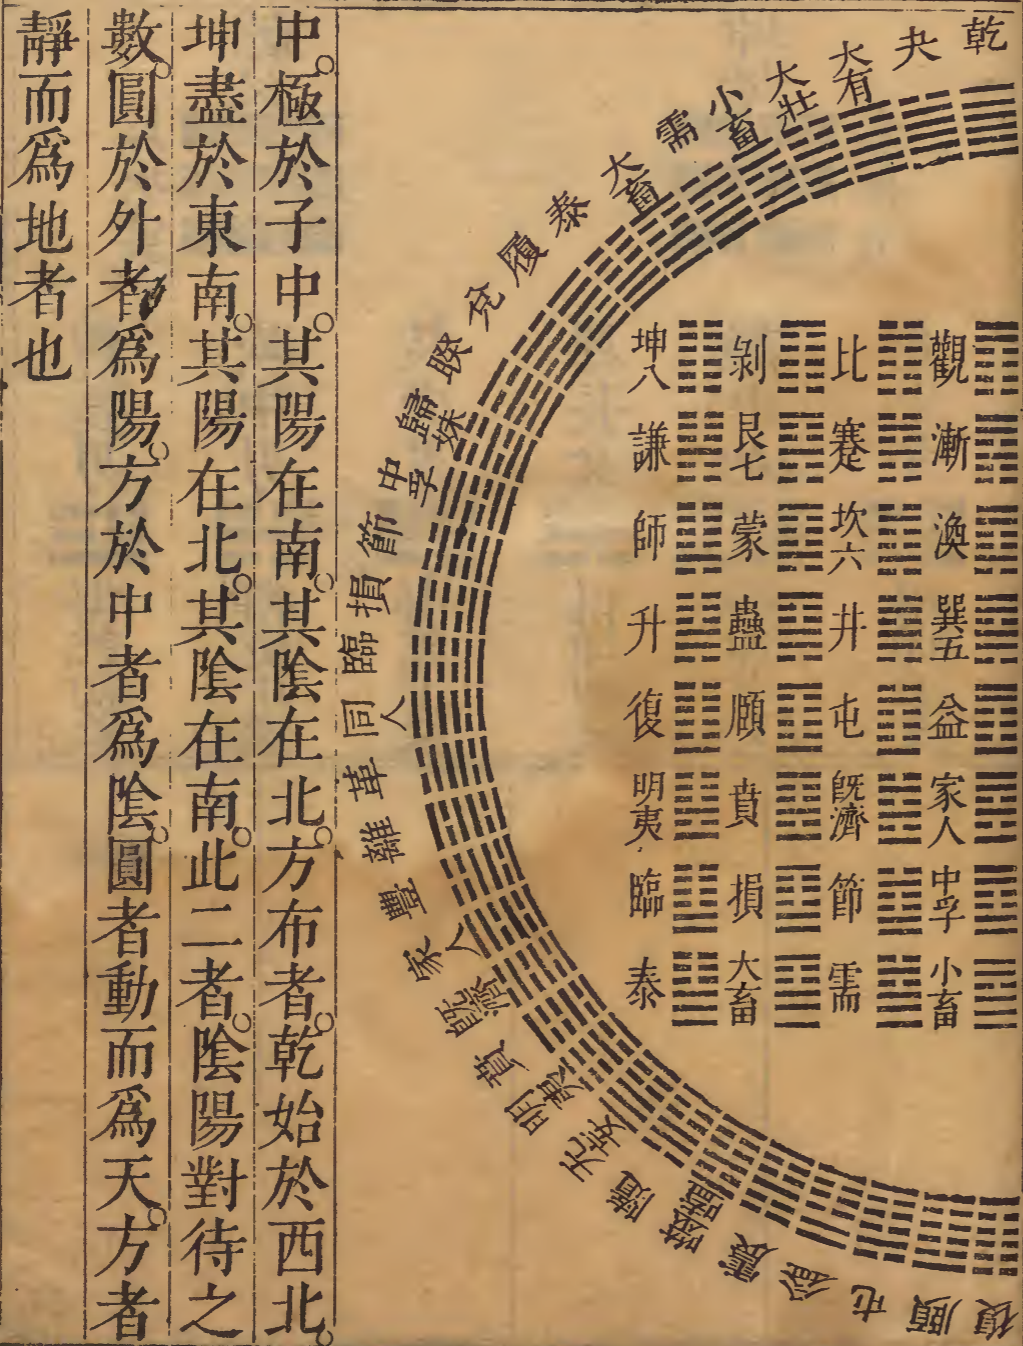 乾
夬
大有
大壯
小畜
需
大畜
泰
履
兌
睽
歸妹
中孚
節
損
臨
同人
革
離
豐
家人
旣濟
賁
明夷
无妄
隨
噬嗑
震
益
屯
頤
復
觀
漸
渙
巽五
益
家人
中孚
小畜
比
蹇
坎六
井
屯
旣濟
節
需
剝
艮七
蒙
蠱
頤
賁
損
大畜
坤八
謙
師
升
復
明夷
臨
泰
中。極於子中。其陽在南。其陰在北。方布者。乾始於西北。
坤盡於東南。其陽在北。其陰在南。此二者。陰陽對待之
數。圓於外者爲陽。方於中者爲陰。圓者動而爲天。方者
靜而爲地者也